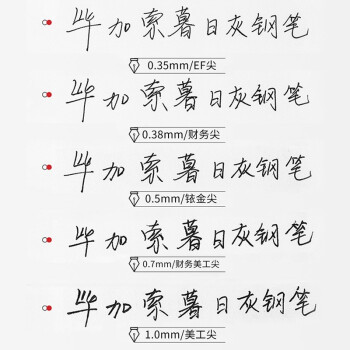 毕加索暮日灰钢笔
0.35mm/EF尖
毕加索暮日灰钢笔
0.38mm/财务尖
毕加索暮日灰钢笔
0.5mm/铱金尖
毕加索暮日灰钢笔
0.7mm/财务美工尖
毕加索暮日灰钢笔
1.0mm/美工尖